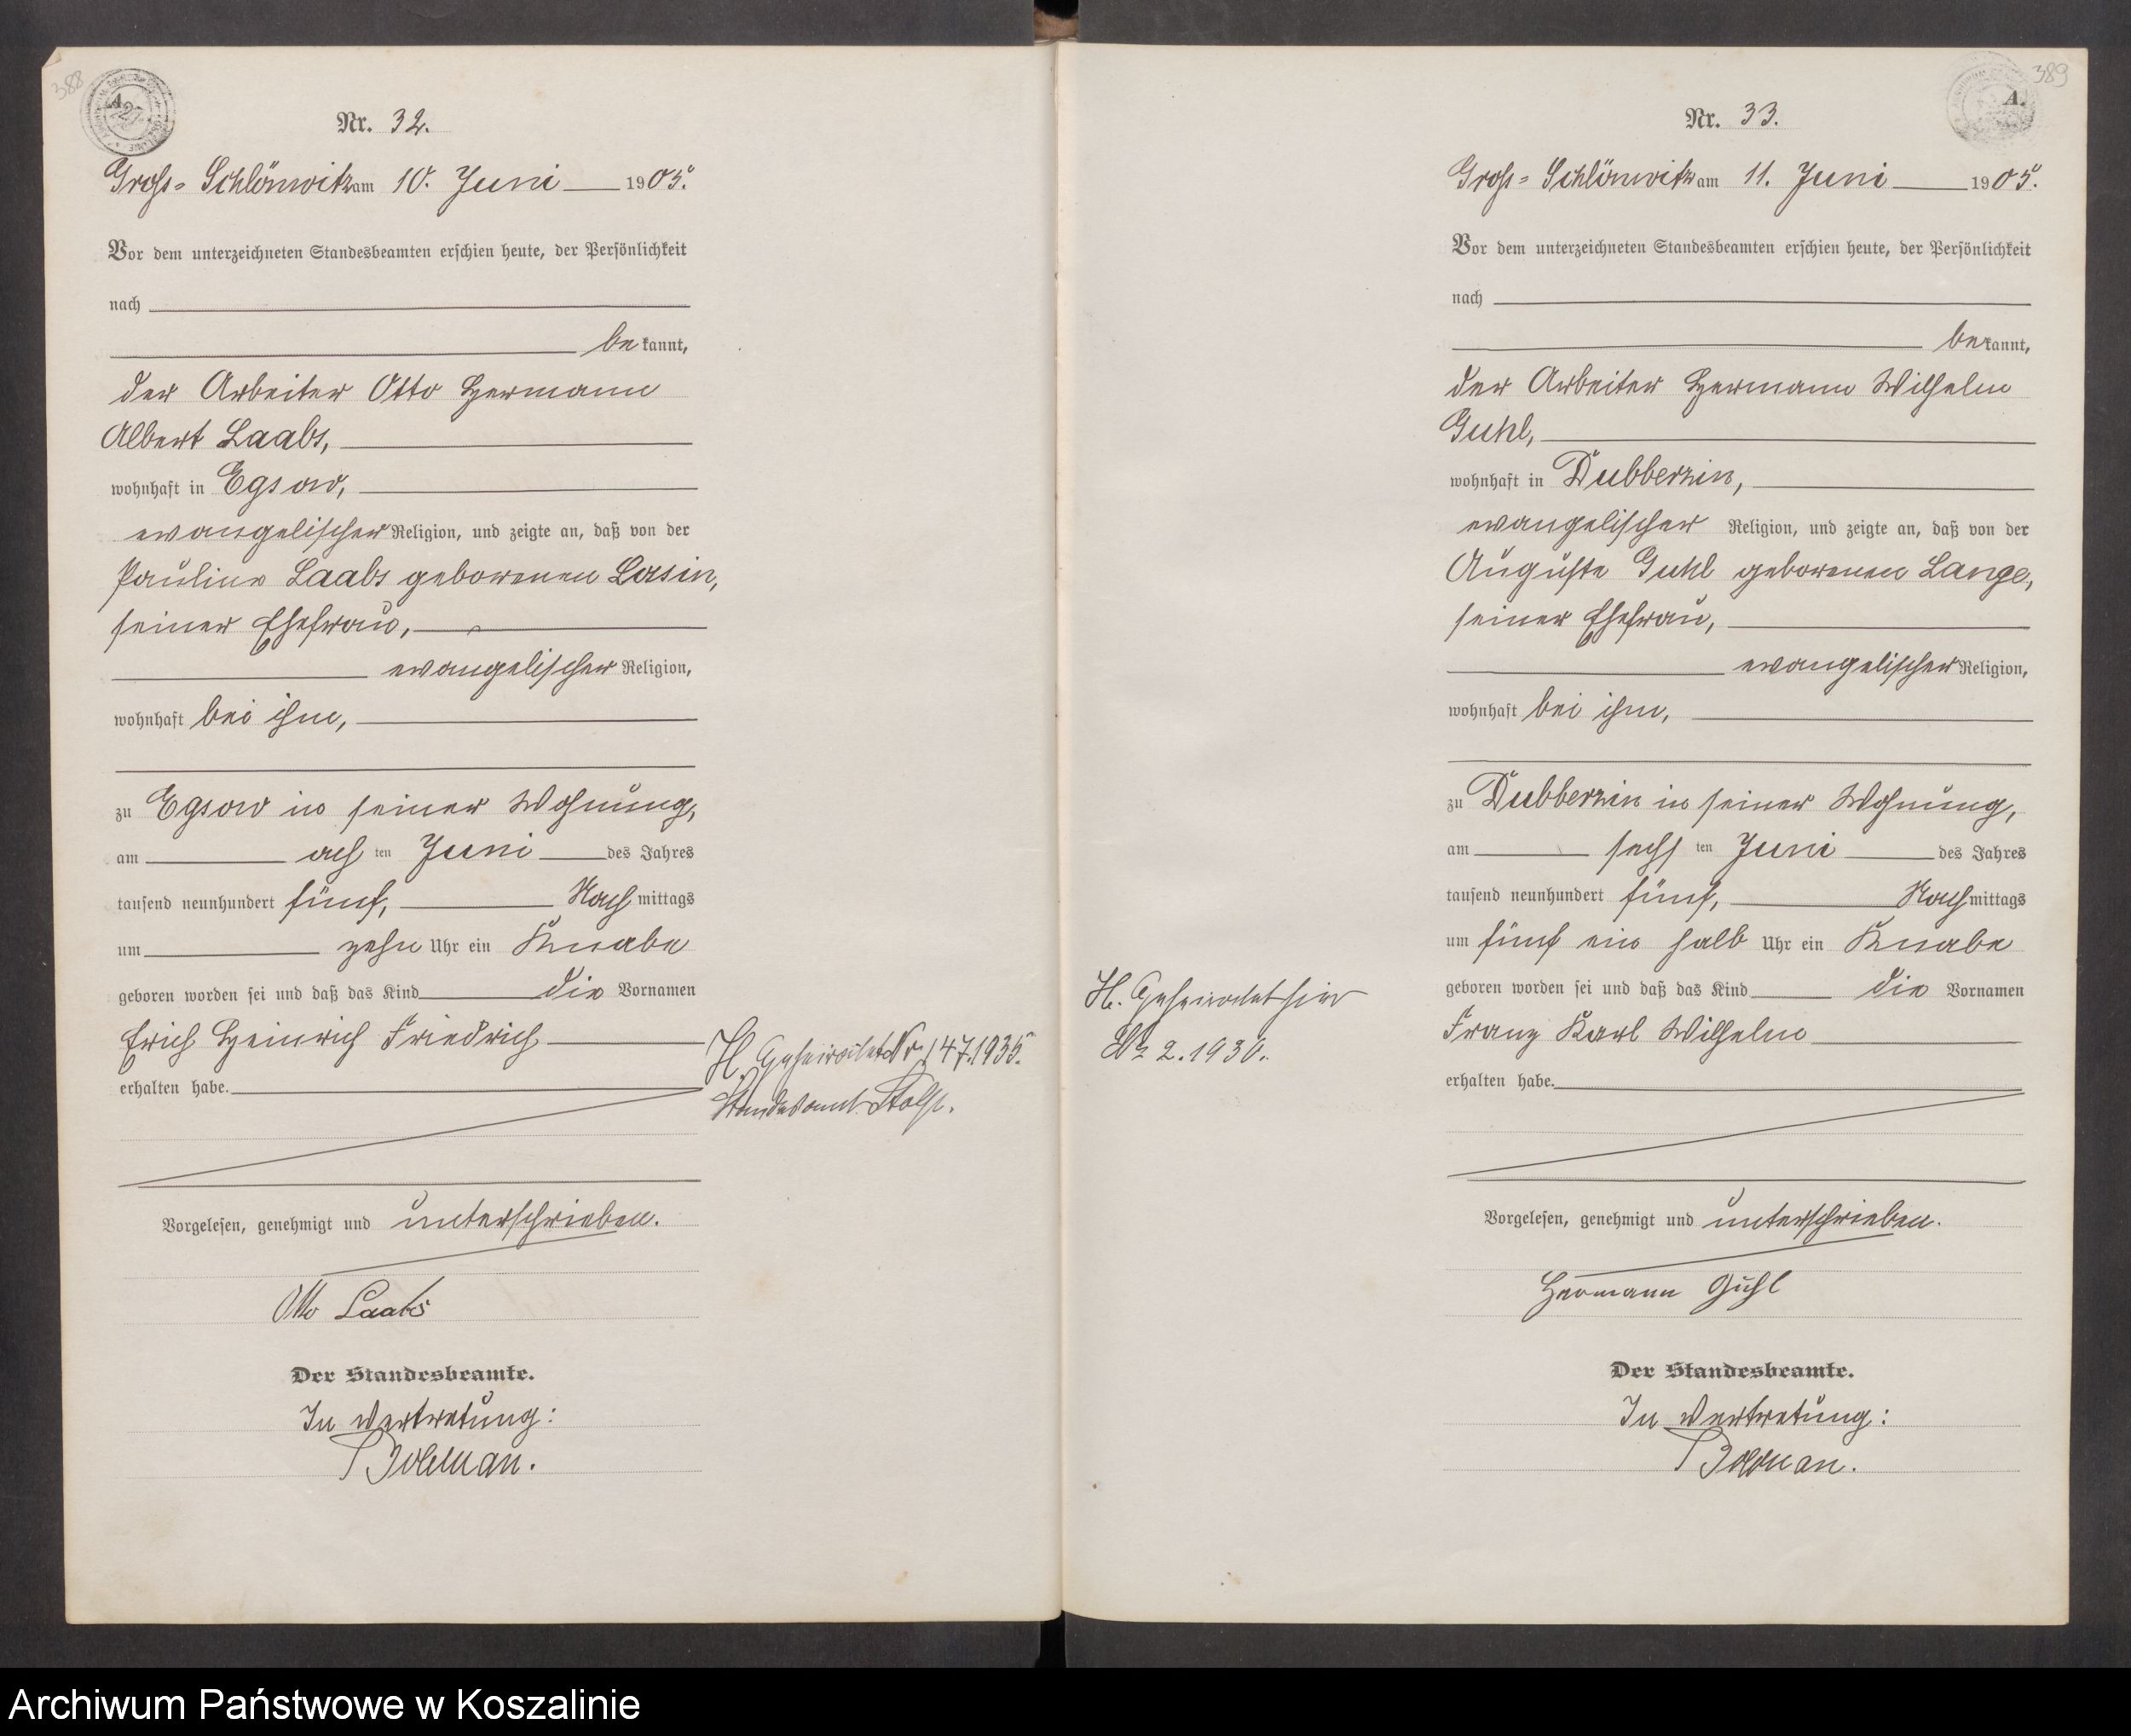 388
A.
Nr. 32.
Gross-Schlönwitz am 10. Juni 1905.
Vor dem unterzeichneten Standesbeamten erschien heute, der Persönlichkeit
nach
bekannt,
der Arbeiter Otto Hermann
Albert Laabs,
wohnhaft in Egsow,
evangelischer Religion, und zeigte an, daß von der
Pauline Laabs geborenen Lasin,
seiner Ehefrau,
evangelischer Religion,
wohnhaft bei ihm,
zu Egsow in seiner Wohnung,
am achten Juni des Jahres
tausend neunhundert fünf, Nachmittags
um zehn Uhr ein Knabe
geboren worden sei und daß das Kind die Vornamen
Erich Heinrich Friedrich
erhalten habe.
H. Geheiratet Nr. 147.1935.
Standesamt Stolp.
Vorgelesen, genehmigt und unterschrieben.
Otto Laabs
Der Standesbeamte.
In Vertretung:
389
A.
Nr. 33.
Gross-Schlönwitz am 11. Juni 1905.
Vor dem unterzeichneten Standesbeamten erschien heute, der Persönlichkeit
nach
bekannt,
der Arbeiter Hermann Wilhelm
Guhl,
wohnhaft in Dubberzin,
evangelischer Religion, und zeigte an, daß von der
Auguste Guhl geborenen Lange,
seiner Ehefrau,
evangelischer Religion,
wohnhaft bei ihm,
zu Dubberzin in seiner Wohnung,
am sechsten Juni des Jahres
tausend neunhundert fünf, Nachmittags
um fünf ein halb Uhr ein Knabe
geboren worden sei und daß das Kind die Vornamen
Franz Karl Wilhelm
erhalten habe.
H. Geheiratet hier
Nr 2.1930.
Vorgelesen, genehmigt und unterschrieben.
Hermann Guhl
Der Standesbeamte.
In Vertretung:
Archiwum Państwowe w Koszalinie